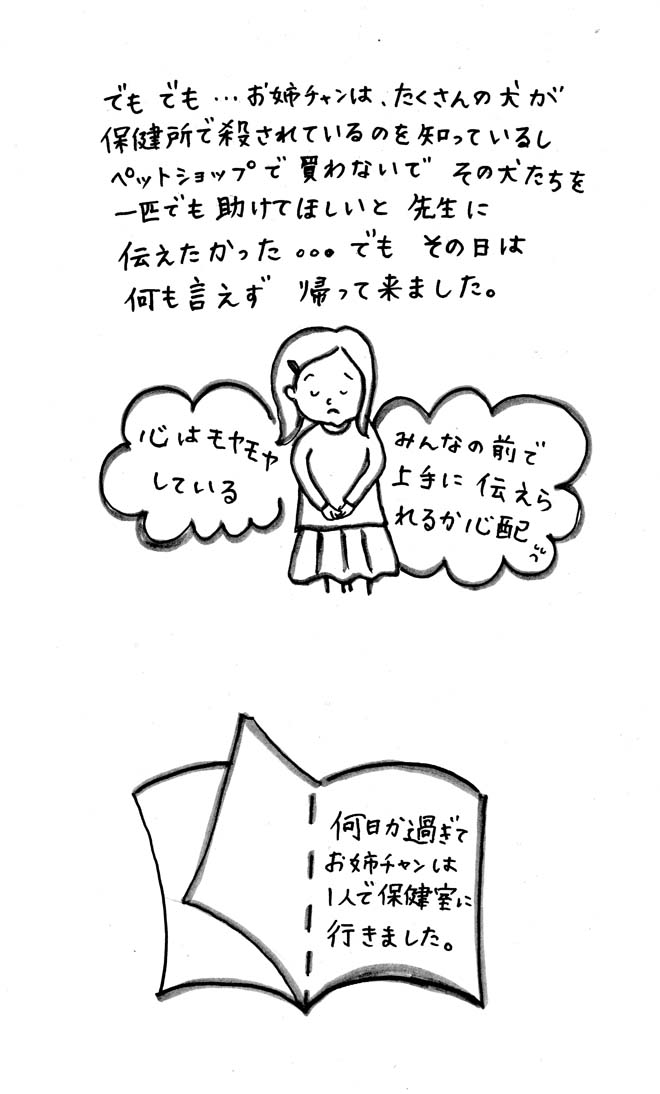 でも でも…お姉チャンは、たくさんの犬が
保健所で殺されているのを知っているし
ペットショップで買わないで その犬たちを
一匹でも助けてほしいと 先生に
伝えたかった 。。。でも その日は
何も言えず 帰って来ました。
心はモヤモヤ
している
みんなの前で
上手に伝えら
れるか心配
何日か過ぎて
お姉チャンは
1人で保健室に
行きました。